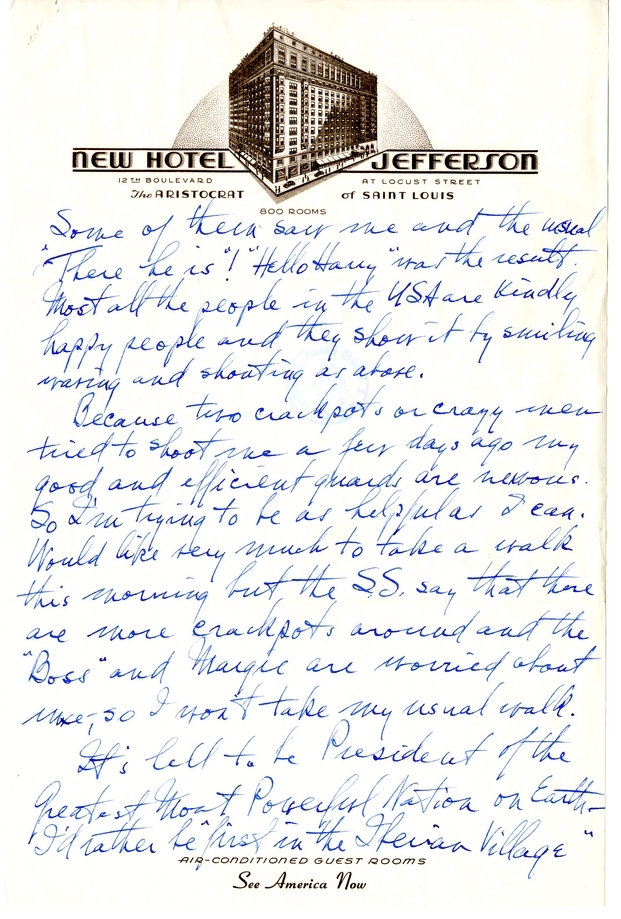 NEW HOTEL JEFFERSON
12TH BOULEVARD AT LOCUST STREET
The ARISTOCRAT of SAINT LOUIS
800 ROOMS
Some of them saw me and the usual
"There he is"! "Hello Harry" was the result.
Most all the people in the USA are kindly
happy people and they show it by smiling
waving and shouting as above.
Because two crackpots or crazy men
tried to shoot me a few days ago my
good and efficient guards are nervous.
So I'm trying to be as helpful as I can.
Would like very much to take a walk
this morning but the S.S. say that there
are more crackpots around and the
"Boss" and Margie are worried about
me, so I won't take my usual walk.
It's hell to be President of the
Greatest Most Powerful Nation on Earth-
I'd rather be "first in the Iberian Village"
AIR-CONDITIONED GUEST ROOMS
See America Now